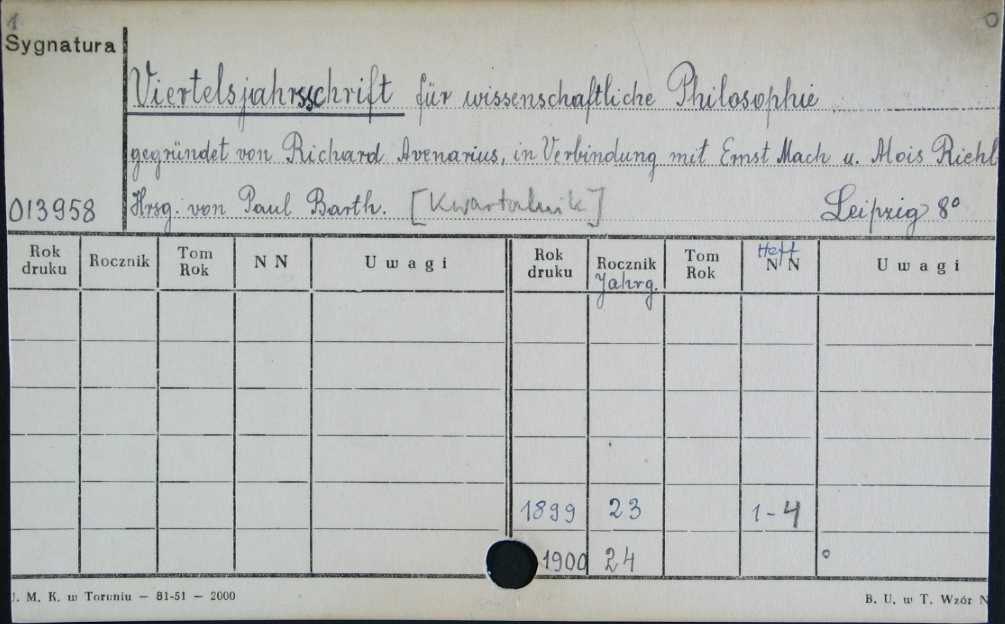 1
Sygnatura
Viertelsjahrsschrift für wissenschaftliche Philosophie
gegründet von Richard Avenarius, in Verbindung mit Ernst Mach u. Alois Riehl
013958 Hrsg. von Paul Barth. [Kwartalnik] Leipzig 8°
Rok druku Rocznik Tom Rok N N Uwagi Rok druku Rocznik Jahrg. Tom Rok Heft N N Uwagi
1899 23 1-4
1900 24
J. M. K. w Toruniu — 81-51 — 2000 B. U. w T. Wzór N